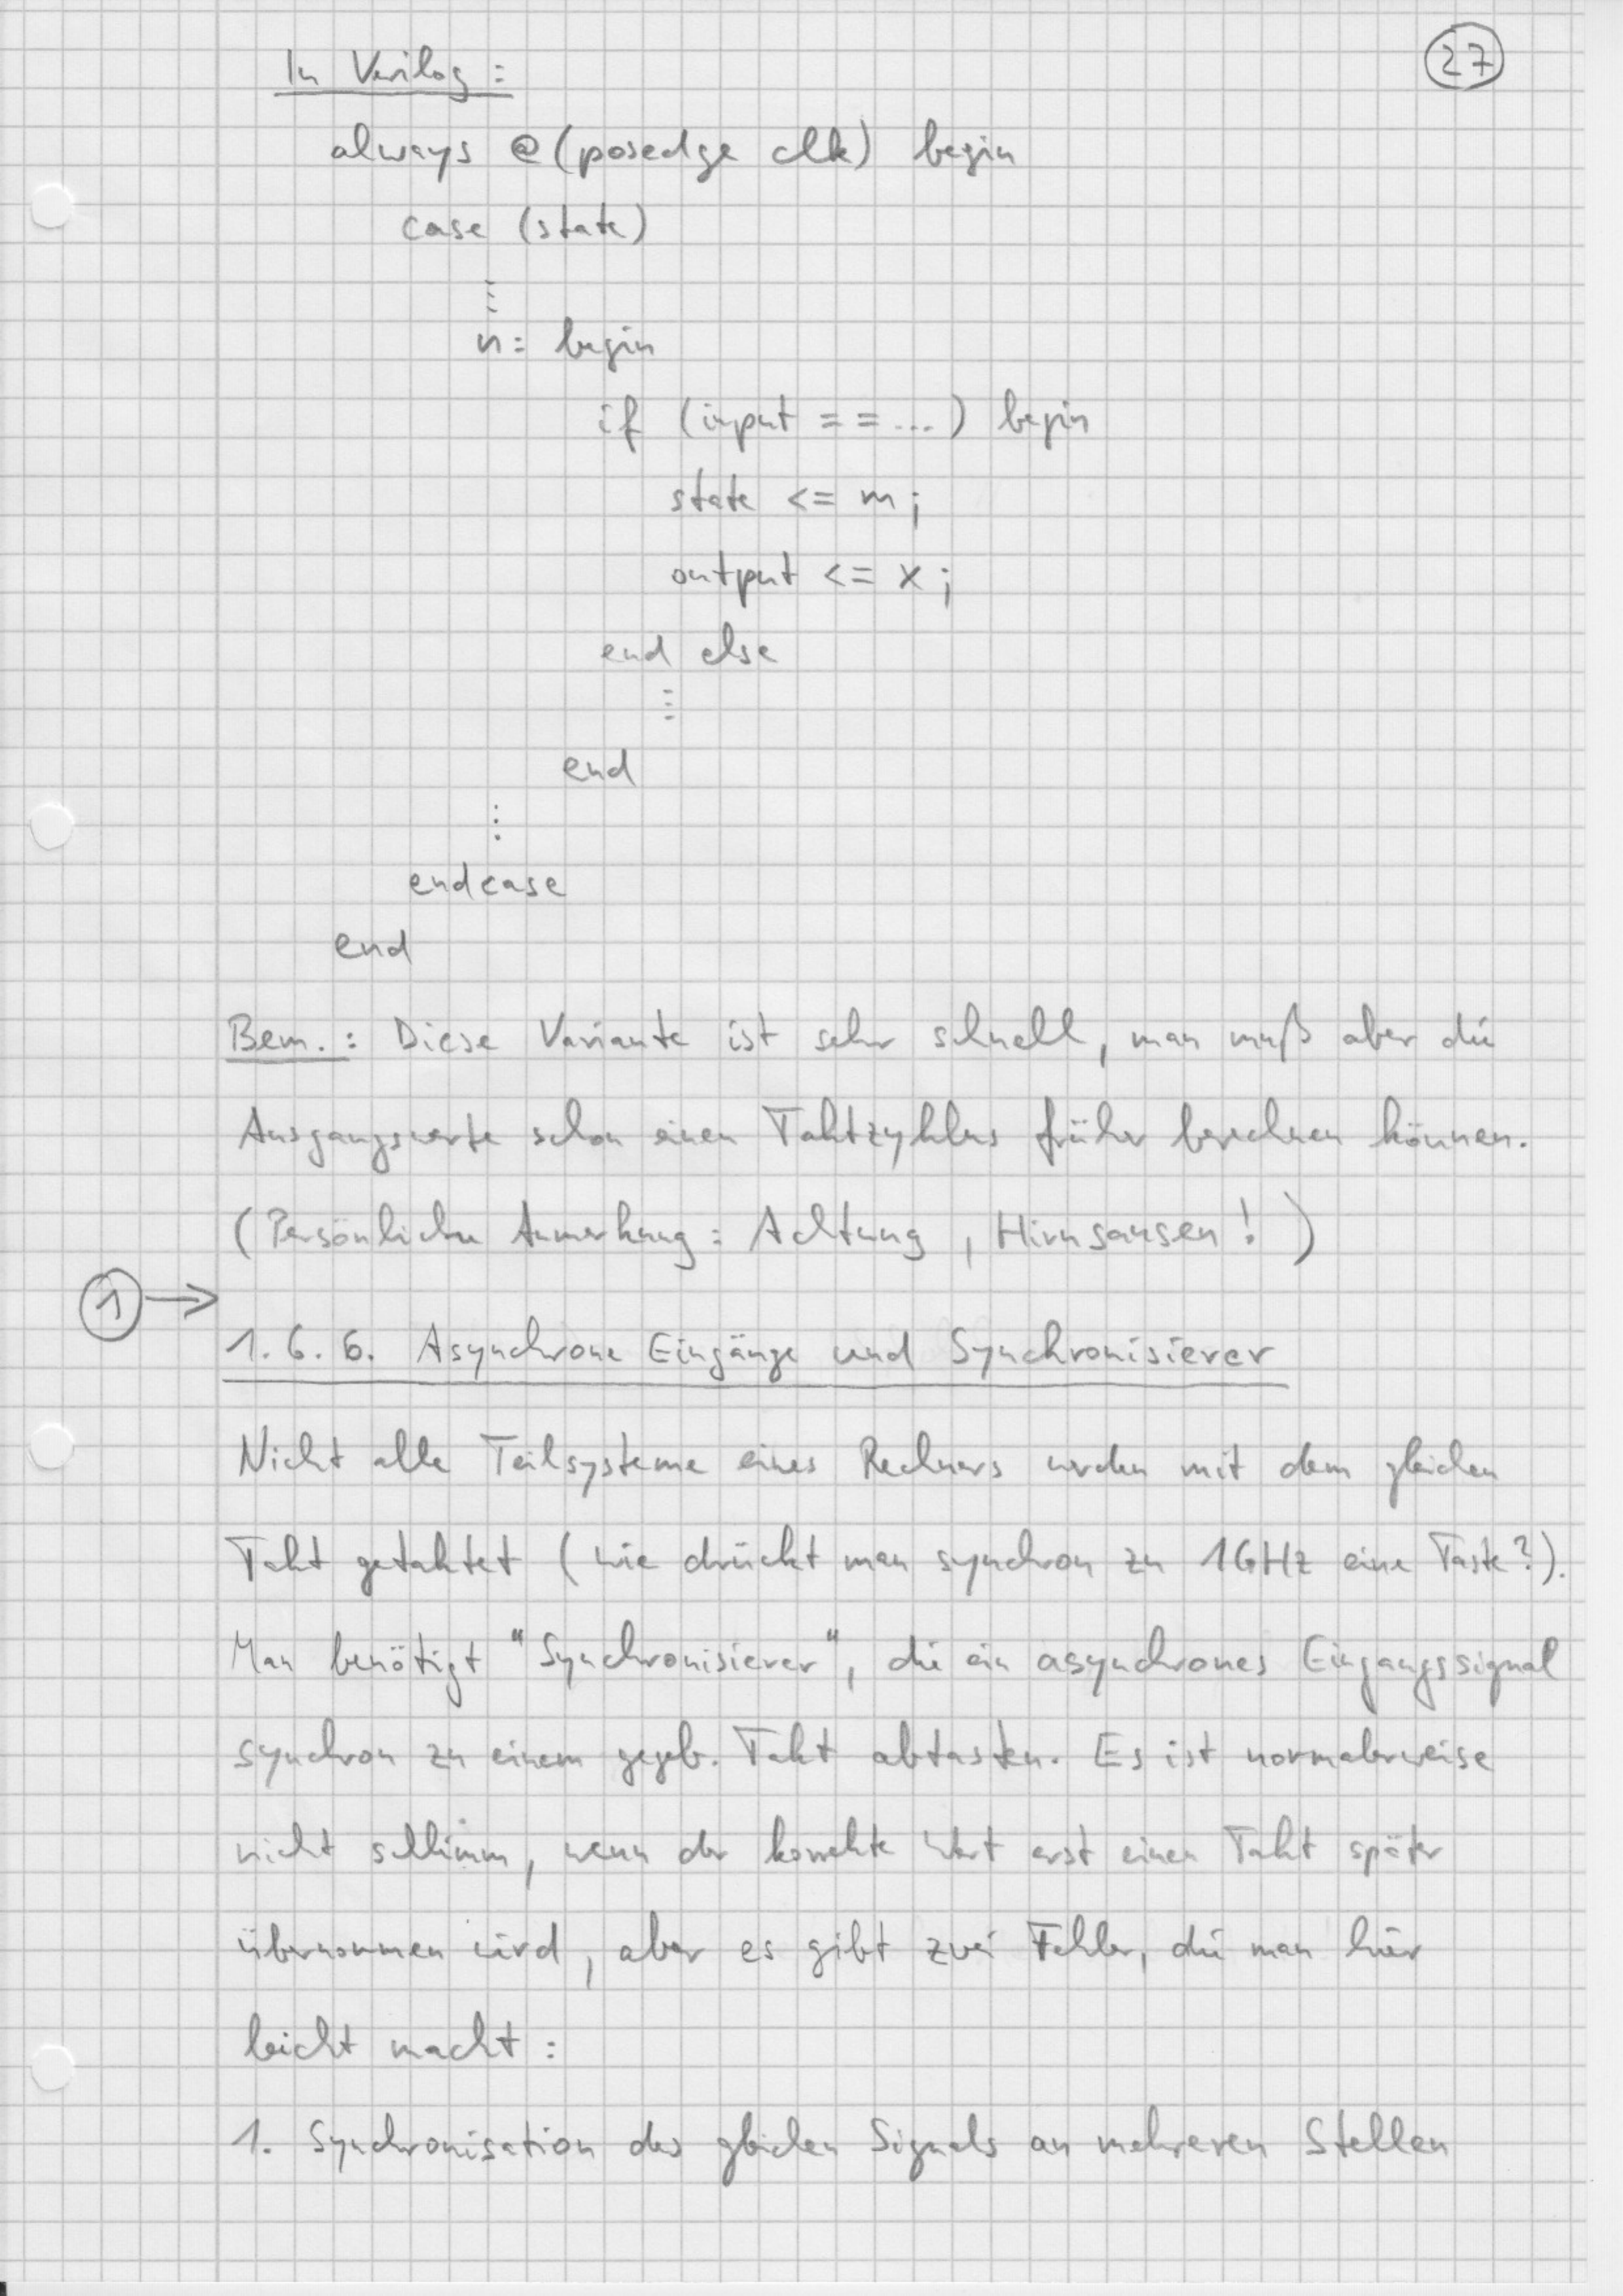 27
In Verilog:
always @(posedge clk) begin
case (state)
⋮
n: begin
if (input == ...) begin
state <= m;
output <= x;
end else
⋮
end
⋮
endcase
end
Bem.: Diese Variante ist sehr schnell, man muß aber die
Ausgangswerte schon einen Taktzyklus früher berechnen können.
(Persönliche Anmerkung: Achtung, Hirnsausen!)
1 →
1.6.6. Asynchrone Eingänge und Synchronisierer
Nicht alle Teilsysteme eines Rechners werden mit dem gleichen
Takt getaktet (wie drückt man synchron zu 1GHz eine Taste?).
Man benötigt "Synchronisierer", die ein asynchrones Eingangssignal
synchron zu einem gegeb. Takt abtasten. Es ist normalerweise
nicht schlimm, wenn der korrekte Wert erst einen Takt später
übernommen wird, aber es gibt zwei Fehler, die man hier
leicht macht:
1. Synchronisation des gleichen Signals an mehreren Stellen